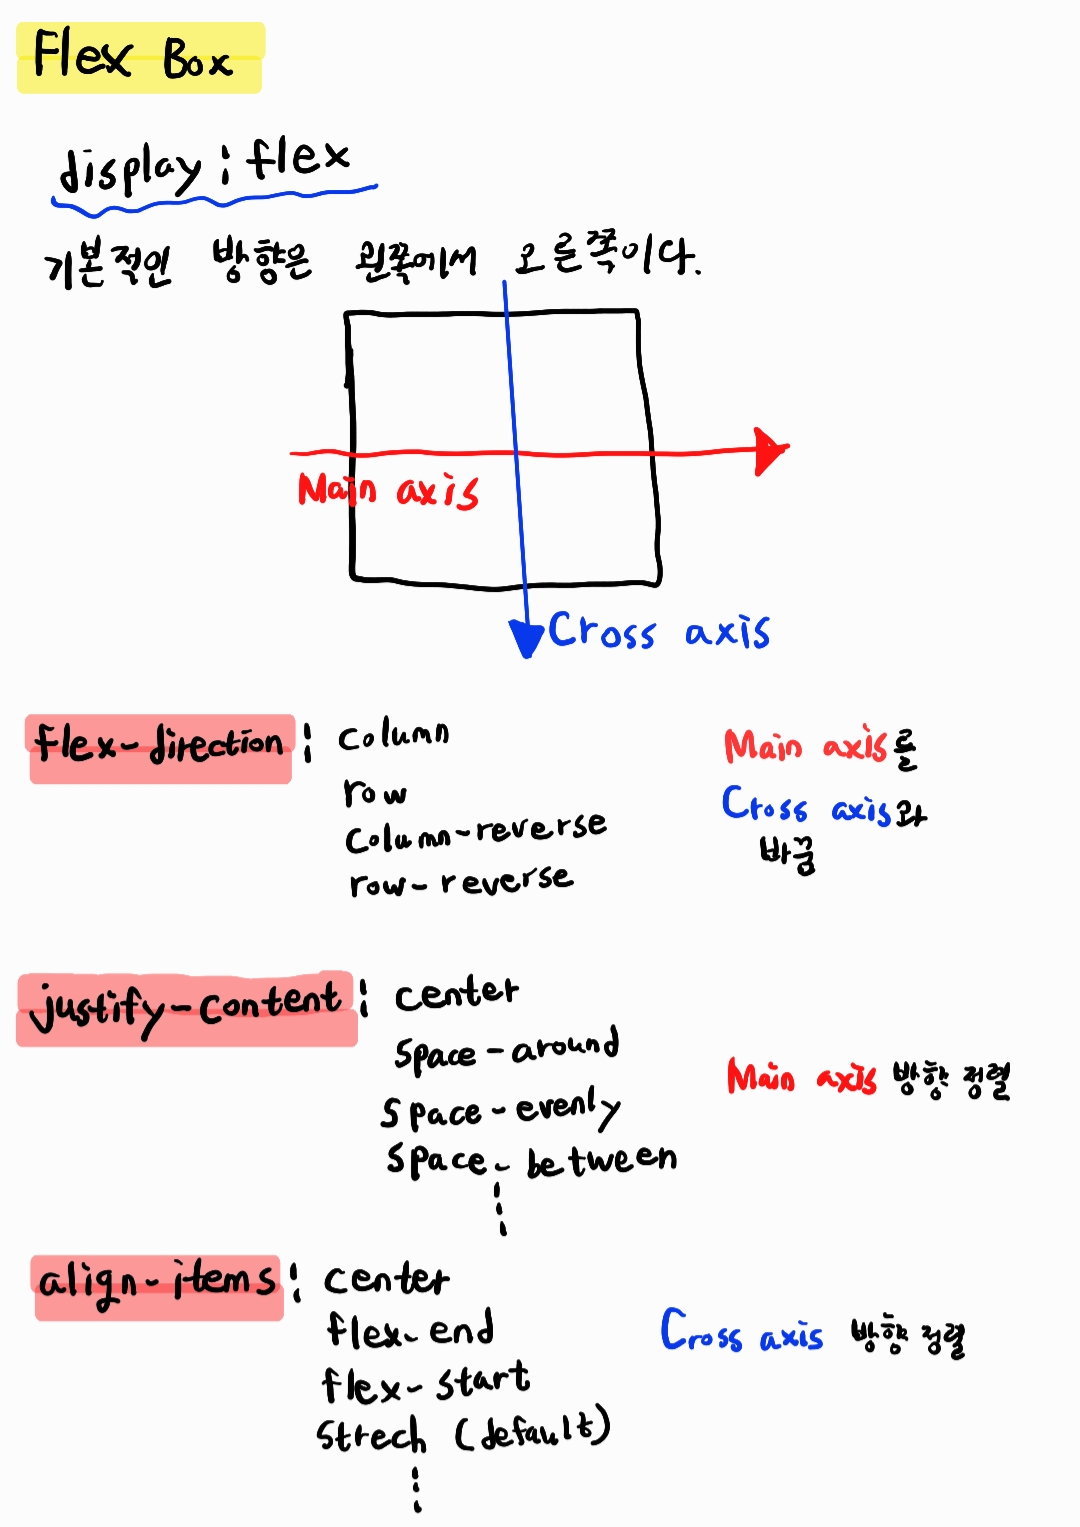 Flex Box
display : flex
기본적인 방향은 왼쪽에서 오른쪽이다.
Main axis
Cross axis
flex-direction : column
row
column-reverse
row-reverse
Main axis를
Cross axis와
바꿈
justify-content : center
space-around
space-evenly
space-between
Main axis 방향 정렬
align-items : center
flex-end
flex-start
strech (default)
Cross axis 방향 정렬